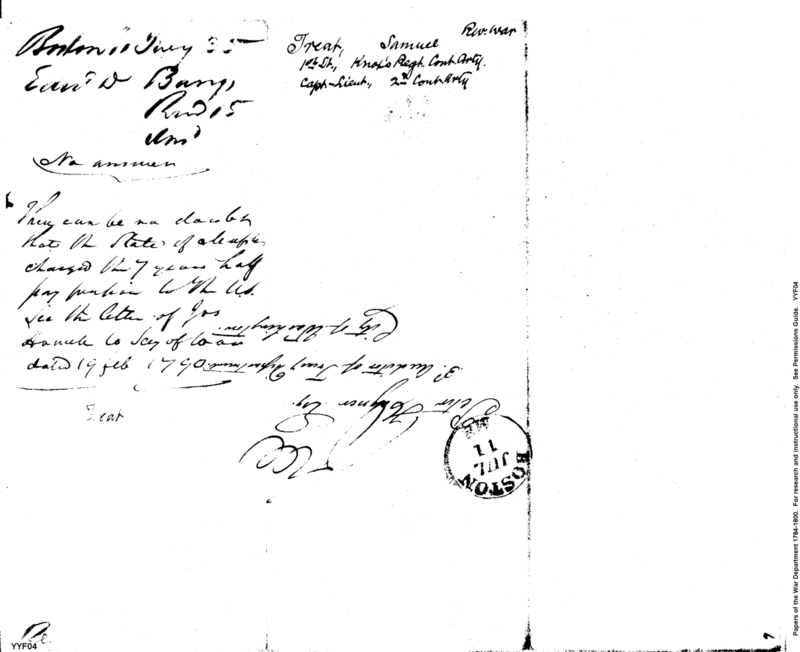 Boston 11 July 35
Edwd D Bangs
Recd 15
Ansd
No answer
There can be no doubt
that the State of Massts
charged the 7 years half
pay pension to the U.S.
See the letter of Jos
Howell to Secy of War
dated 19 feb 1790
Treat
Treat, Samuel
Rev. War
1st Lt., Knox's Regt. Cont. Arty.
Capt-Lieut., 2nd Cont. Arty
Peter Hagner Esq.
3d. Auditor of Treasy Department
City of Washington.
BOSTON
JUL
11
YYF04
Papers of the War Department 1784-1800. For research and instructional use only. See Permissions Guide. YYF04